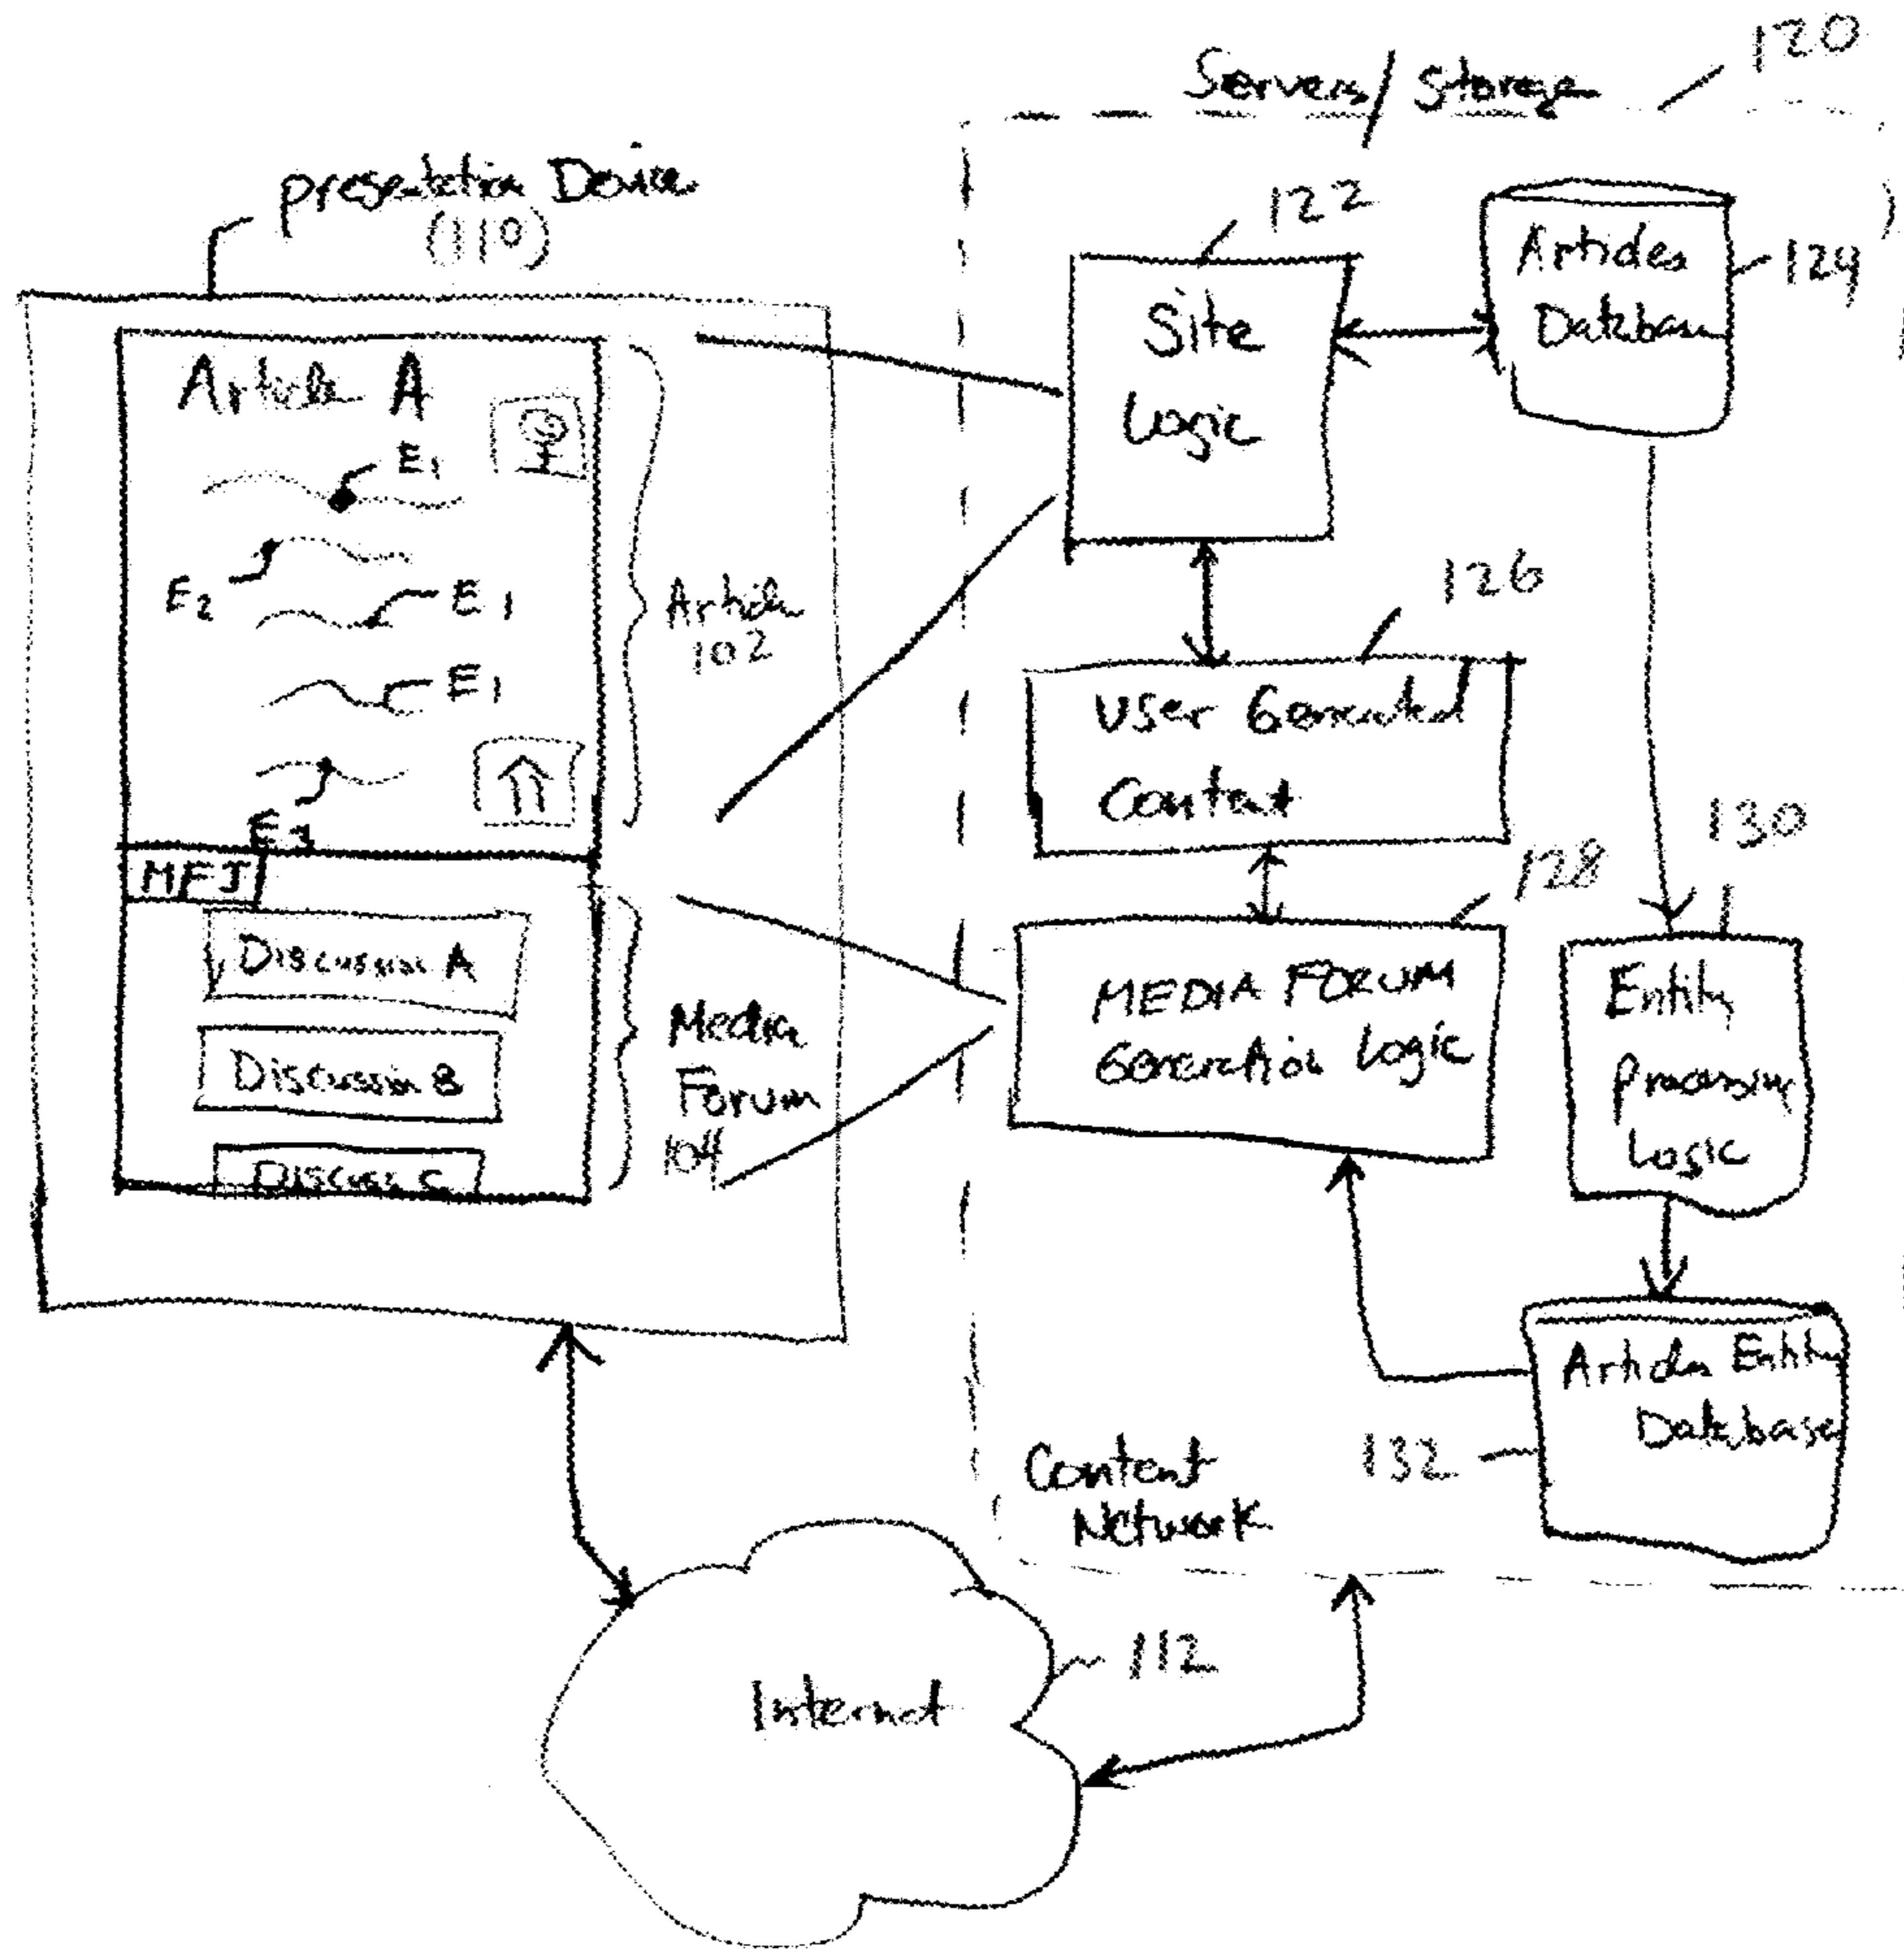 120
Servers/Storage
presentation Device
(110)
122
Site
Logic
Articles
Database
124
Article A
E1
E2
E1
E1
Article
102
126
User Generated
Content
130
128
MFI
Discussion A
Discussion B
Discuss C
Media
Forum
104
MEDIA FORUM
Generation Logic
Entity
Processing
Logic
Articles Entity
Database
132
Content
Network
112
Internet